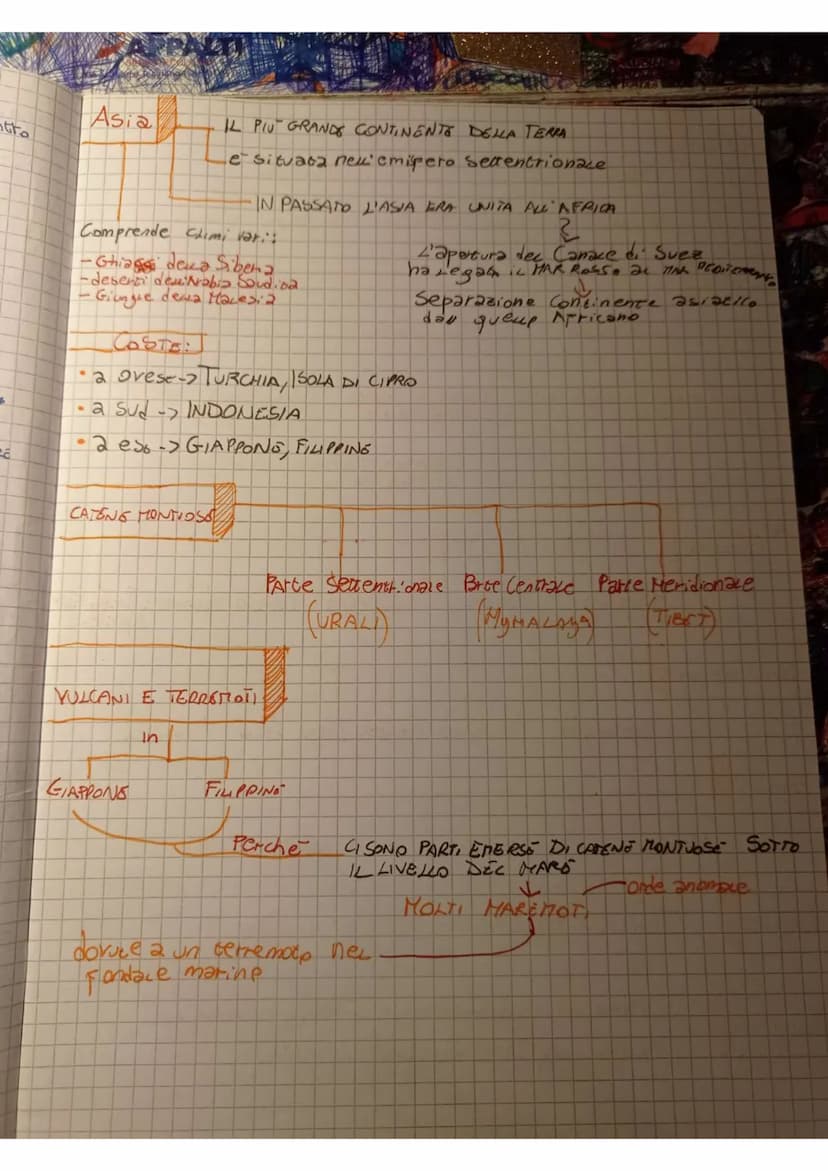 APPALTI
Asia
IL PIU' GRANDE CONTINENTE DELLA TERRA
e' situata nell'emipero settentrionale
IN PASSATO L'ASIA ERA UNITA ALL'AFRICA
Comprende climi vari:
- Ghiacci della Siberia
- deserti dell'Arabia Saudida
- Giungle della Malesia
L'apertura del Canale di Suez
ha legato il MAR ROSSO al MAR MEDITERRANEO
Separazione Continente asiatico
dall quello Africano
COSTE:
• a ovest -> TURCHIA, ISOLA DI CIPRO
• a sud -> INDONESIA
• a est -> GIAPPONE, FILIPPINE
CATENE MONTUOSE
Parte Settentrionale Parte Centrale Parte Meridionale
(URALI) (HyMALAYA) (TIBET)
VULCANI E TERREMOTI
in
GIAPPONE FILIPPINE
Perché CI SONO PARTI EMERSE DI CATENE MONTUOSE SOTTO
IL LIVELLO DEL MARE
onde anomale
MOLTI MAREMOTI
dovute a un terremoto nel
fondale marino